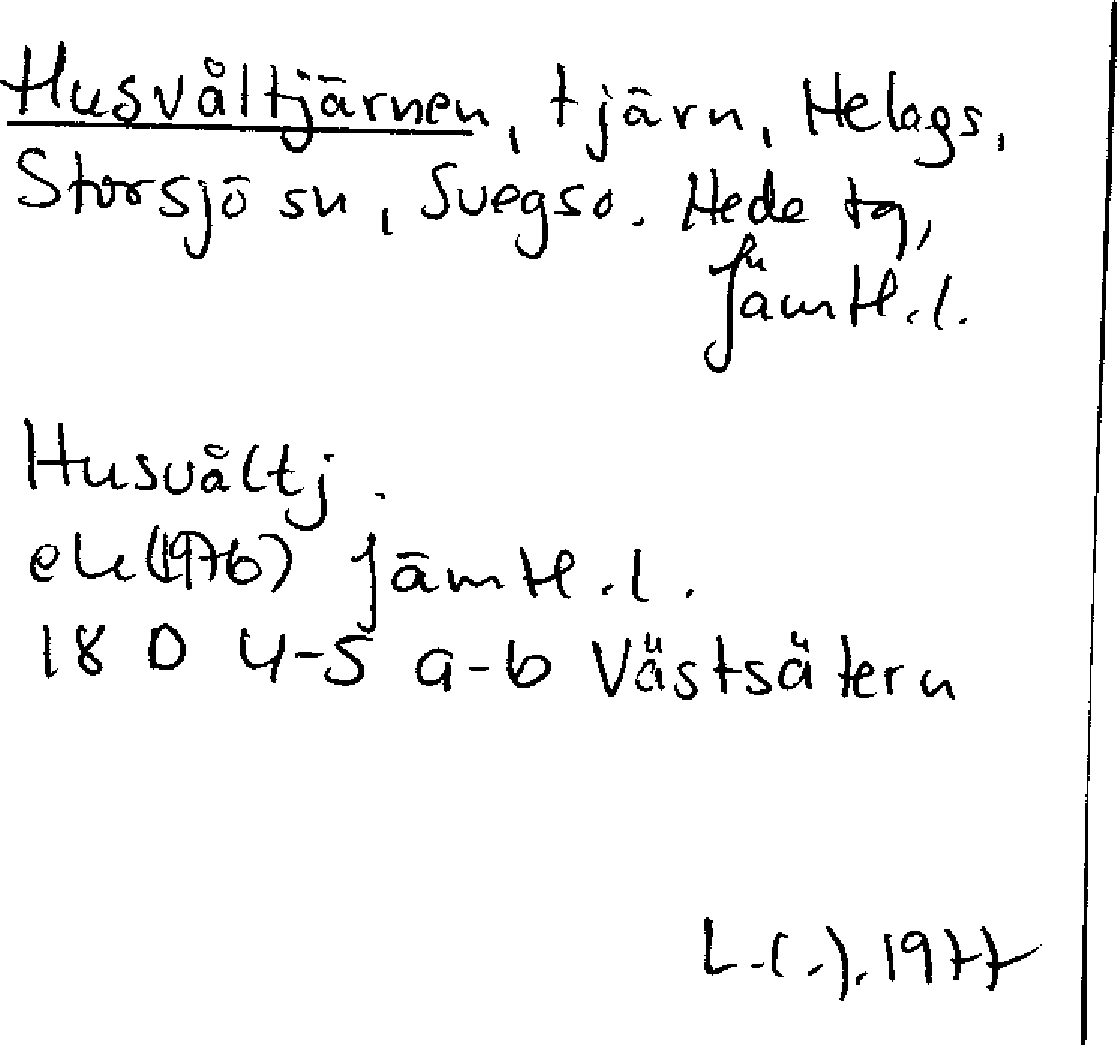 Husvåltjärnen, tjärn, Helags,
Storsjö sn, Svegs o. Hede tg,
Jämtl.l.
Husvåltj.
ek (1976) Jämtl.l.
18 D 4-5 a-b Västsätern
L.(-). 1977